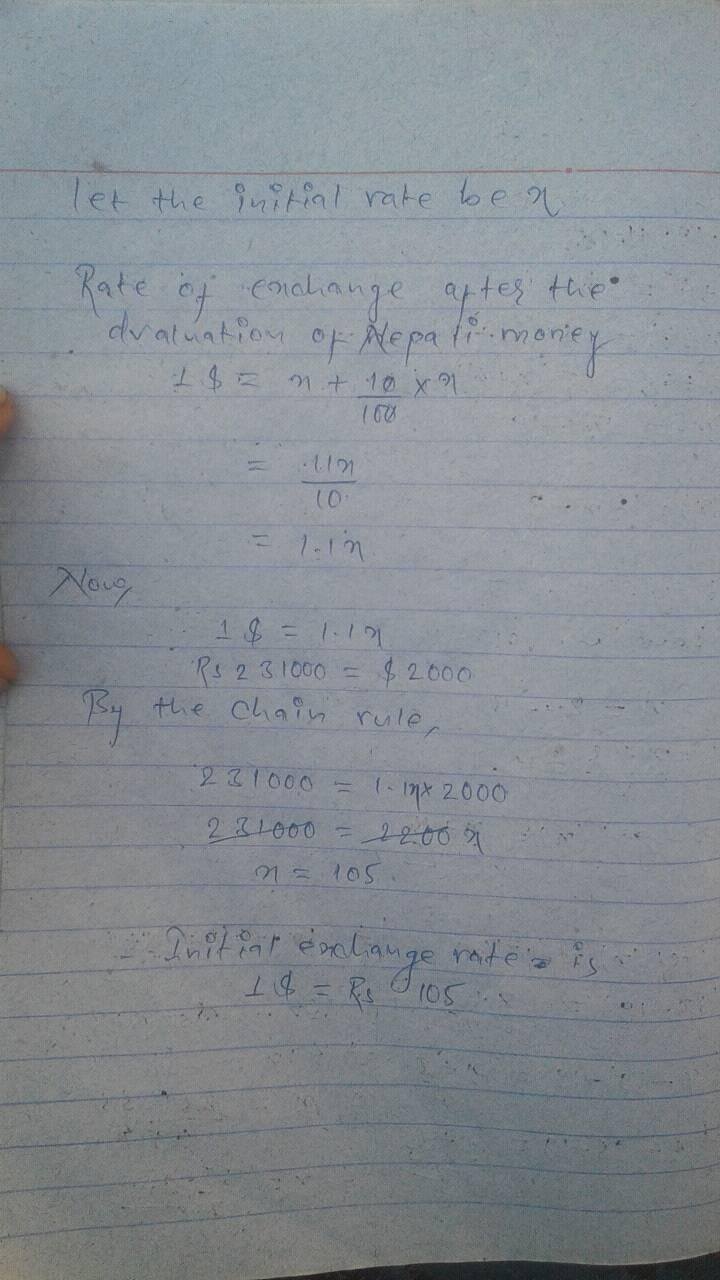 let the initial rate be x
Rate of exchange after the
dvaluation of Nepali money
1 $ = x + 10/100 × x
= 11x/10
= 1.1x
Now,
1 $ = 1.1x
Rs 231000 = $ 2000
By the chain rule,
231000 = 1.1x × 2000
231000 = 2200 x
x = 105.
∴ Initial exchange rate is
1 $ = Rs 105